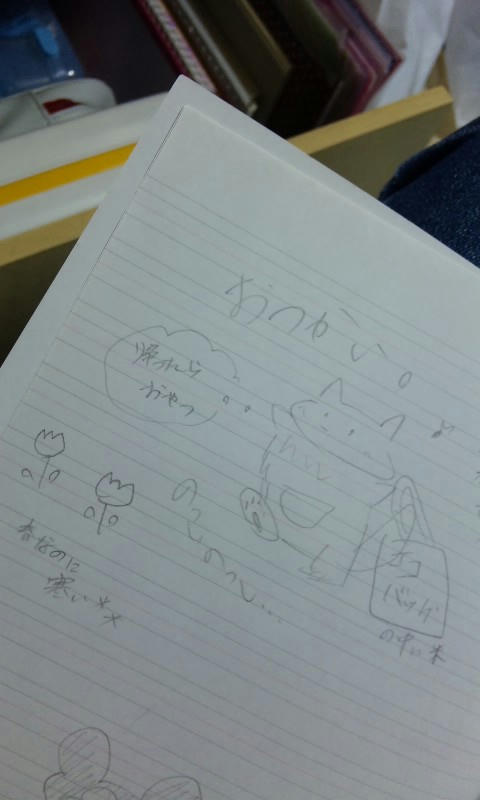 おつかい。
帰ったら
おやつ
のっし
のっし…
春なのに
寒い
エコ
バッグ
の中に米